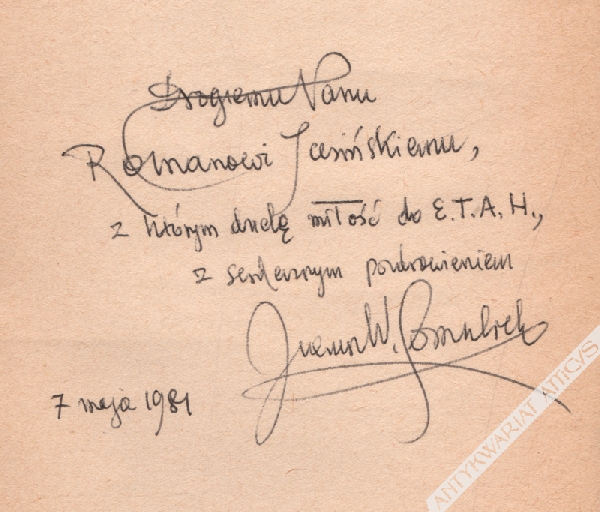 Drogiemu Panu
Romanowi Jasińskiemu,
z którym dzielę miłość do E.T.A.H.,
z serdecznym pozdrowieniem
7 maja 1981
ANTYKWARIAT ATTICVS